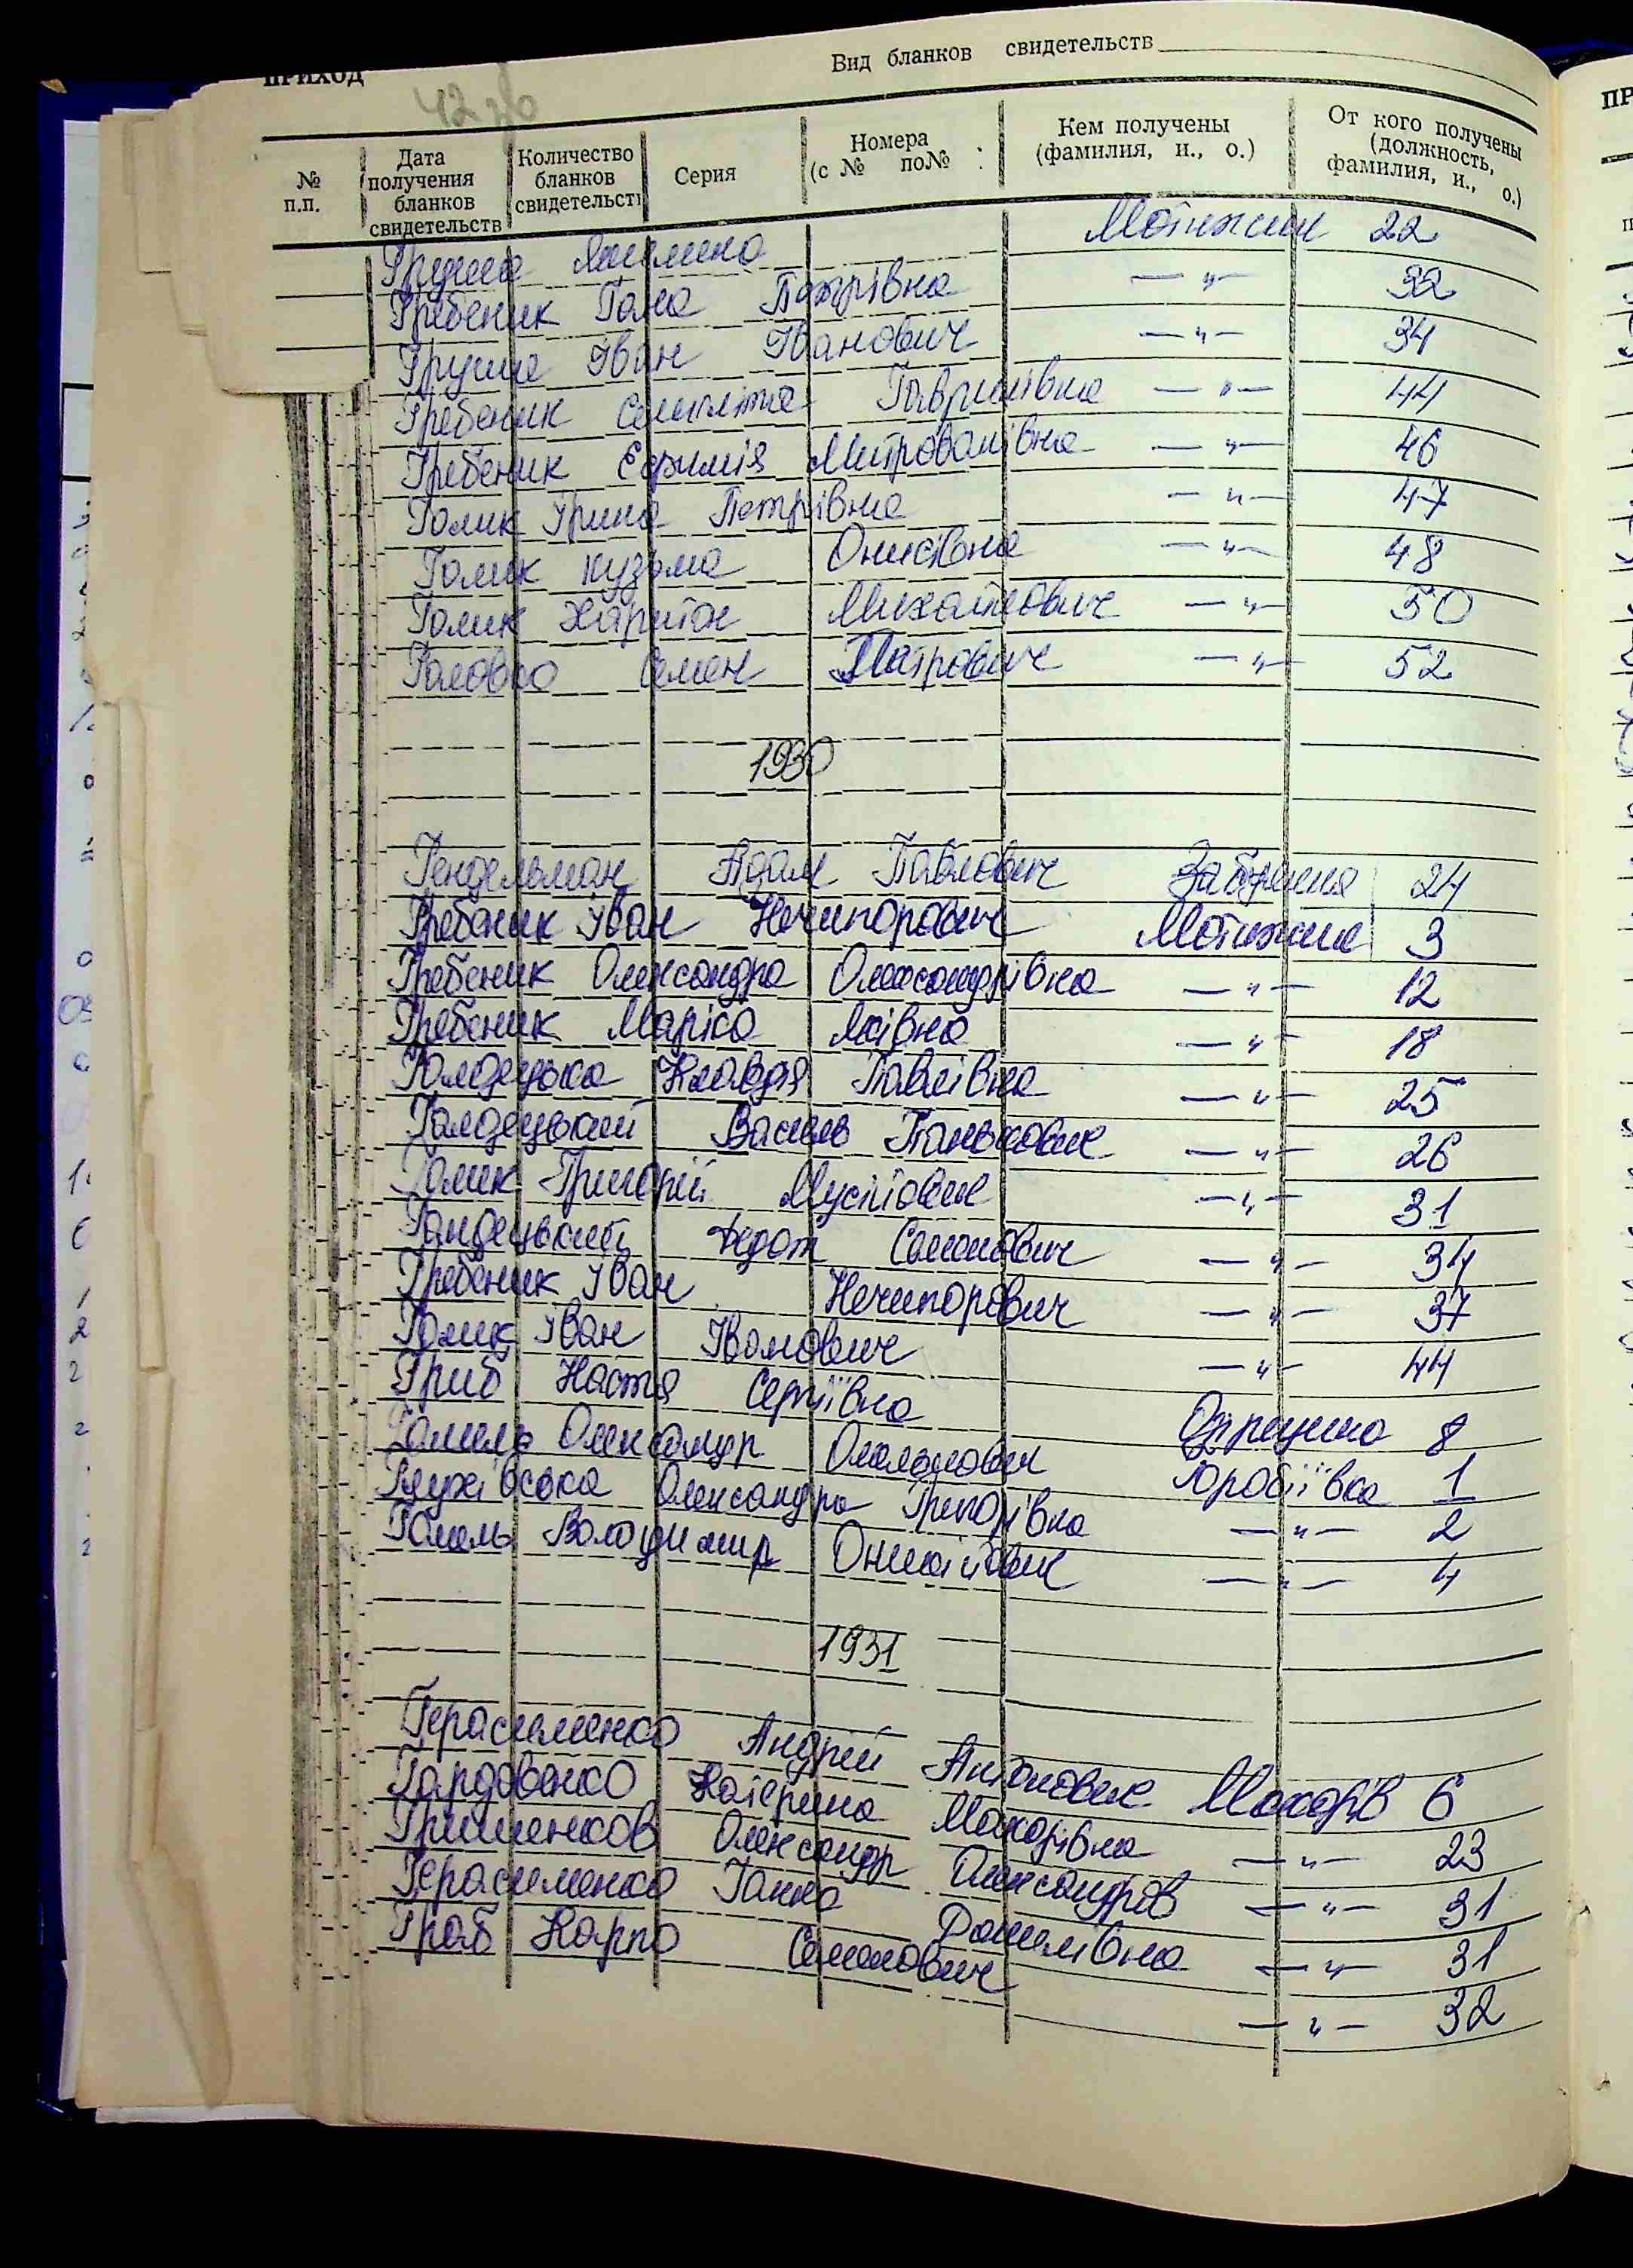 ПРИХОД
Вид бланков свидетельств
42 зв
№ п.п.
Дата получения бланков свидетельств
Количество бланков свидетельств
Серия
Номера (с № по№ :
Кем получены (фамилия, и., о.)
От кого получены (должность, фамилия, и., о.)
Груша Мотижин 22
Гребеник Гала Петрівна —"— 32
Груша Іван Іванович —"— 34
Гребеник Гаврилівна —"— 44
Гребеник Ефимія Митрованівна —"— 46
Голик Ірина Петрівна —"— 47
Голик Кузьма Онисівна —"— 48
Голик Харитон Михайлович —"— 50
Головко Семен —"— 52
1930
Гендельман Адам Павлович 24
Гребеник Іван Нечипорович Мотижин 3
Гребеник Олександра Олександрівна —"— 12
Гребеник Маріка —"— 18
Голдецька Клавдя Павлівна —"— 25
Галдецький Василь Панькович —"— 26
Голик Григорій Мусійович —"— 31
Гандецький Федот Семонович —"— 34
Гребеник Іван Нечипорович —"— 37
Голик Іван Іванович —"— 44
Гриб Настя Сергіївна 8
Гомель Олександр Юробіївка 1
Глухівська Олександра Григорівна —"— 2
Гомель Володимир Оникійович —"— 4
1931
Герасименко Андрій Антонович Макарів 6
Гардовенко Катерина Макарівна —"— 23
Гришенков Олександр Олександров —"— 31
Герасименко Ганна Данилівна —"— 31
Граб Карпо Семенович —"— 32